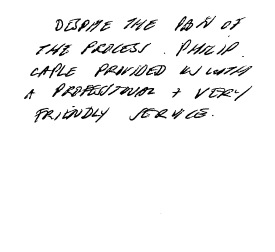 DESPITE THE PAIN OF
THE PROCESS. PHILIP
CAPLE PROVIDED US WITH
A PROFESSIONAL + VERY
FRIENDLY SERVICE.